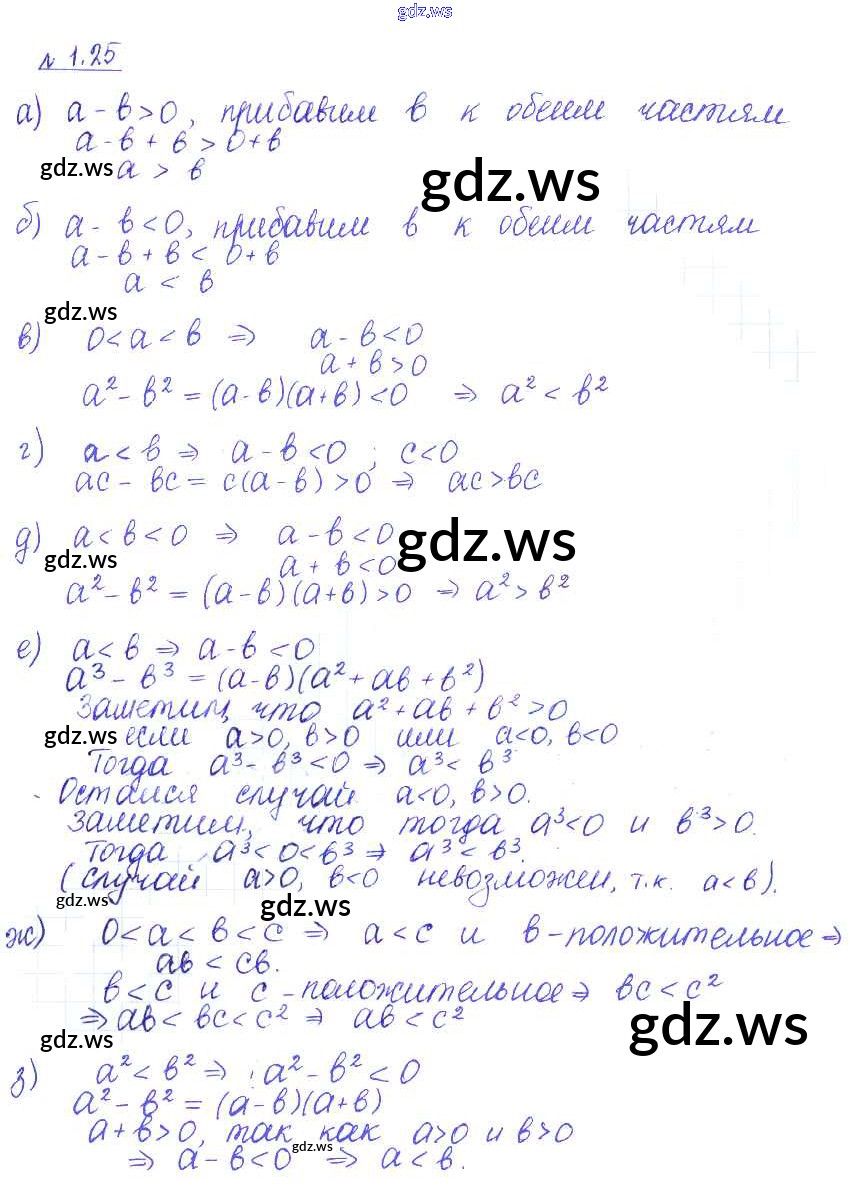 gdz.ws
№ 1.25
а) a - b > 0, прибавим b к обеим частям
a - b + b > 0 + b
gdz.ws a > b
gdz.ws
б) a - b < 0, прибавим b к обеим частям
a - b + b < 0 + b
a < b
gdz.ws
в) 0 < a < b ⇒ a - b < 0
a + b > 0
a² - b² = (a - b)(a + b) < 0 ⇒ a² < b²
г) a < b ⇒ a - b < 0 ; c < 0
ac - bc = c(a - b) > 0 ⇒ ac > bc
д) a < b < 0 ⇒ a - b < 0
gdz.ws
gdz.ws a + b < 0
a² - b² = (a - b)(a + b) > 0 ⇒ a² > b²
е) a < b ⇒ a - b < 0
a³ - b³ = (a - b)(a² + ab + b²)
Заметим, что a² + ab + b² > 0
gdz.ws если a > 0, b > 0 или a < 0, b < 0
Тогда a³ - b³ < 0 ⇒ a³ < b³
Остался случай a < 0, b > 0.
Заметим, что тогда a³ < 0 и b³ > 0.
Тогда a³ < 0 < b³ ⇒ a³ < b³.
(случай a > 0, b < 0 невозможен, т.к. a < b).
gdz.ws gdz.ws
ж) 0 < a < b < c ⇒ a < c и b - положительное ⇒
ab < cb.
b < c и c - положительное ⇒ bc < c²
⇒ ab < bc < c² ⇒ ab < c²
gdz.ws
gdz.ws
з) a² < b² ⇒ a² - b² < 0
a² - b² = (a - b)(a + b)
a + b > 0, так как a > 0 и b > 0
gdz.ws
⇒ a - b < 0 ⇒ a < b.